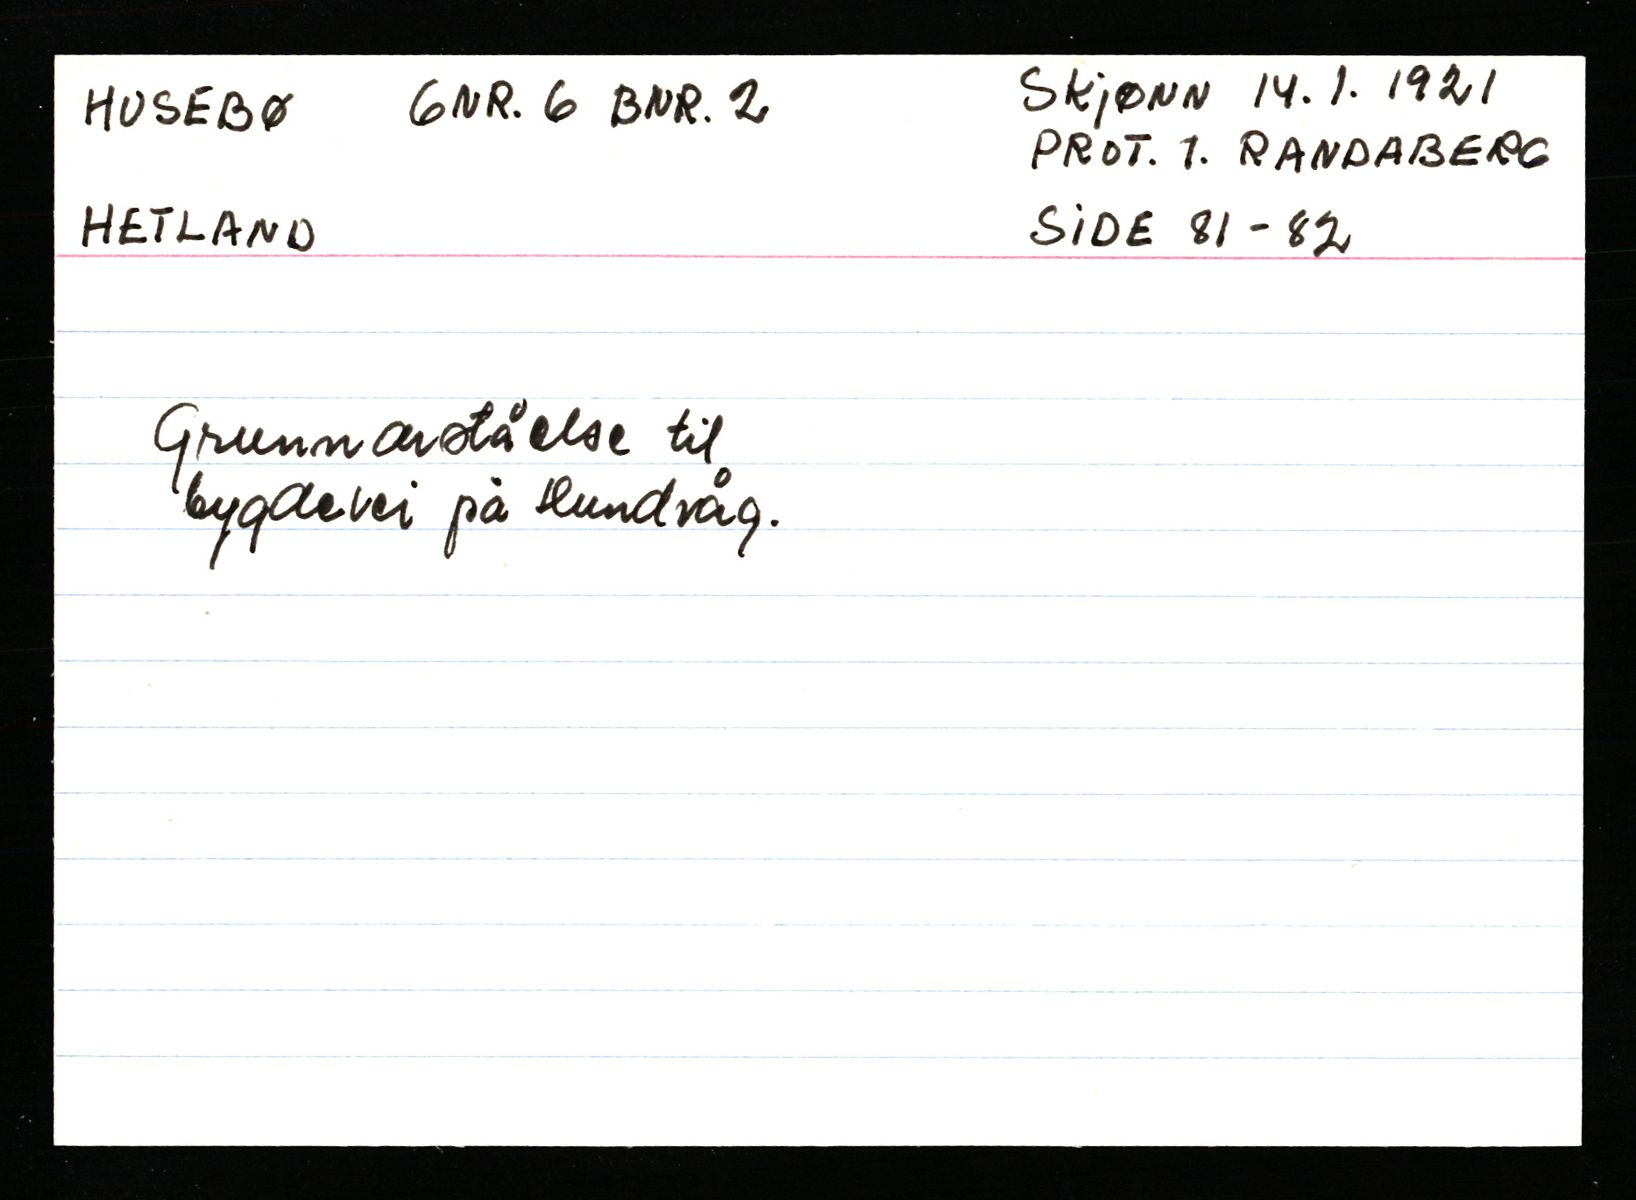 HUSEBØ GNR. 6 BNR. 2 Skjønn 14. 1. 1921
PROT. 1. RANDABERG
HETLAND SIDE 81 - 82
Grunnavståelse til
bygdevei på Hundvåg.